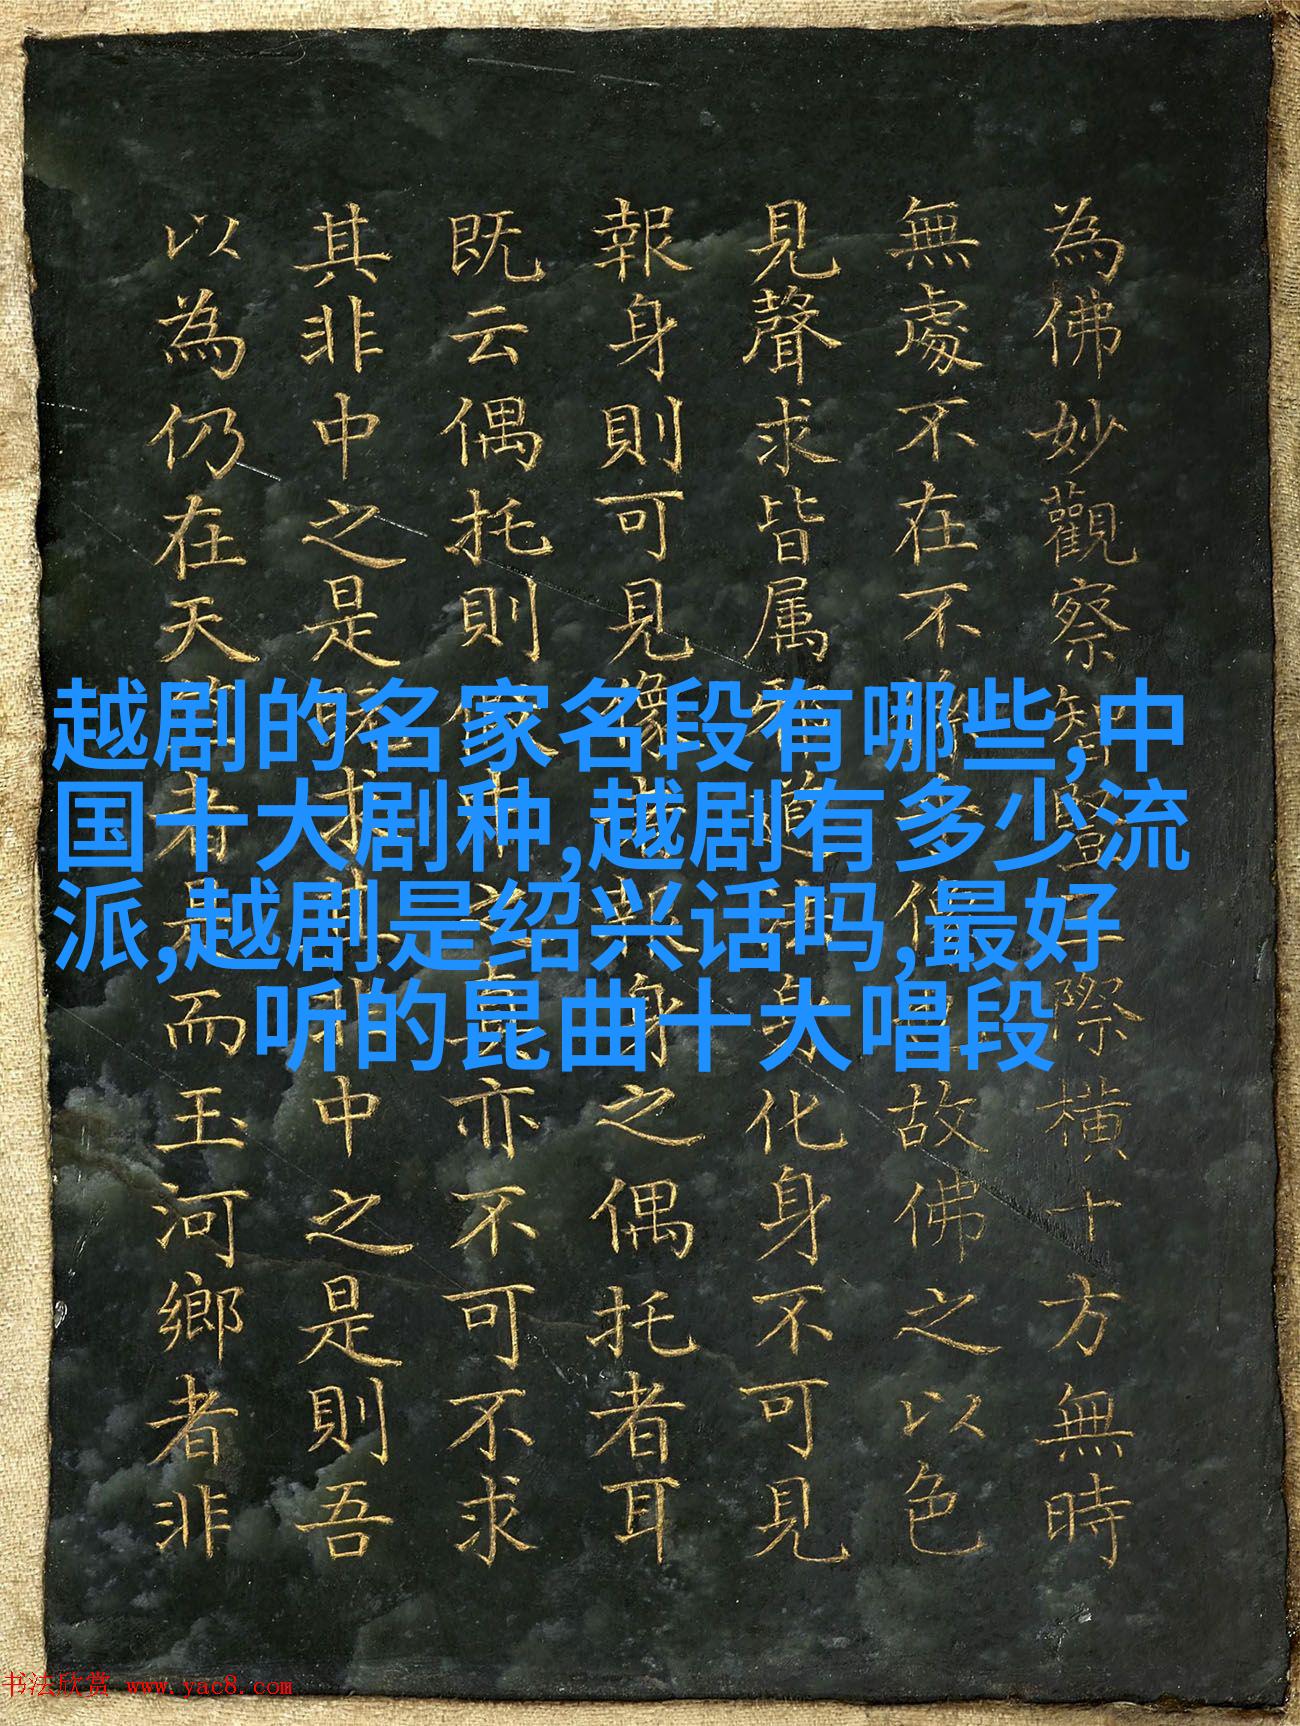 為佛妙觀察智豎際橫十方無時
無處不在不故佛之以色
見聲求皆属道身化身不可見
報身則可見像與身之偶托者耳
既云偶托則亦不可不求
其非中之是中之是則吾
以為仍在天者是而玉河鄉者非
越剧的名家名段有哪些,中
国十大剧种,越剧有多少流
派,越剧是绍兴话吗,最好
听的昆曲十大唱段
书法欣赏 www.yac8.com